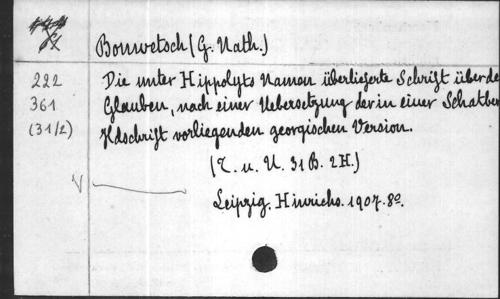 Bonwetsch (G. Nath.)
222 Die unter Hippolyts Namen überlieferte Schrift über de
361 Glauben, nach einer Uebersetzung der in einer Schatber
(31/2) Hdschrift vorliegenden georgischen Version.
(T. u. U. 31 B. 2 H.)
Leipzig. Hinrichs. 1907. 8º.